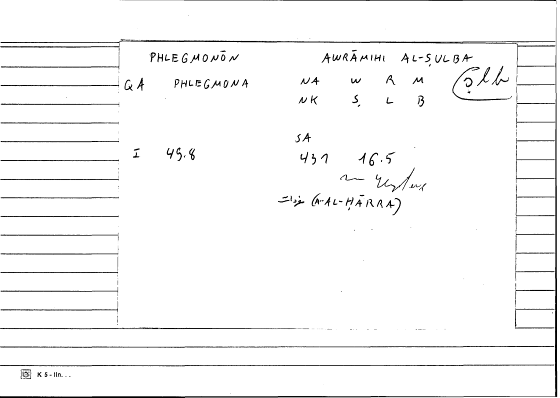 PHLEGMONŌN AWRĀMIHI AL-ṢULBA
QA PHLEGMONA NA W R M ṣlb
NK Ṣ L B
SA
I 49.8 431 16.5
(A-AL-ḤĀRRA)
K 5 - lin...